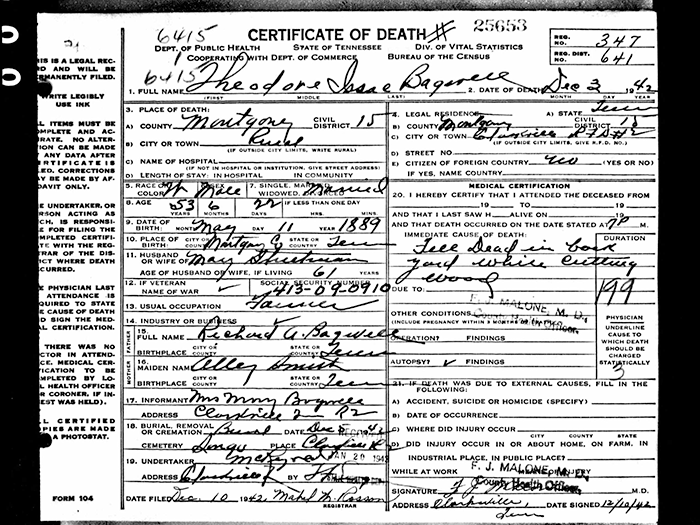 6415
CERTIFICATE OF DEATH
25653
DEPT. OF PUBLIC HEALTH STATE OF TENNESSEE DIV. OF VITAL STATISTICS
COOPERATING WITH DEPT. OF COMMERCE BUREAU OF THE CENSUS
REG. NO. 347
REG. DIST. 641
6415
1. FULL NAME Theodore Isaac Bagwell
(FIRST) (MIDDLE) (LAST)
2. DATE OF DEATH Dec 3 1942
MONTH DAY YEAR
IS IS A LEGAL REC-
RD AND WILL BE
RMANENTLY FILED.
WRITE LEGIBLY
USE INK
LL ITEMS MUST BE
OMPLETE AND AC-
RATE. NO ALTER-
TION CAN BE MADE
ANY DATA AFTER
ERTIFICATE IS
LED. CORRECTIONS
Y BE MADE BY AF-
DAVIT ONLY.
E UNDERTAKER, OR
RSON ACTING AS
CH, IS RESPONSI-
E FOR FILING THE
MPLETED CERTIFI-
TE WITH THE REG-
TRAR OF THE DIS-
CT WHERE DEATH
CURRED.
E PHYSICIAN LAST
ATTENDANCE IS
QUIRED TO STATE
E CAUSE OF DEATH
D SIGN THE MEDI-
L CERTIFICATION.
THERE WAS NO
CTOR IN ATTEND-
E. MEDICAL CER-
ICATION TO BE
MPLETED BY LO-
HEALTH OFFICER
CORONER, IF IN-
EST WAS HELD).
LL CERTIFIED
PIES ARE MADE
A PHOTOSTAT.
FORM 104
3. PLACE OF DEATH:
A) COUNTY Montgomery CIVIL DISTRICT 15
B) CITY OR TOWN Rural
(IF OUTSIDE CITY LIMITS, WRITE RURAL)
C) NAME OF HOSPITAL
(IF NOT IN HOSPITAL OR INSTITUTION, GIVE STREET ADDRESS)
D) LENGTH OF STAY: IN HOSPITAL IN COMMUNITY
5. RACE OR COLOR W SEX Male 7. SINGLE, MARRIED, WIDOWED, DIVORCED Married
8. AGE 53 6 22 IF LESS THAN ONE DAY
YEARS MONTHS DAYS HRS. MINS.
9. DATE OF BIRTH: May 11 1889
MONTH DAY YEAR
10. PLACE OF BIRTH: Montgomery Co STATE OR COUNTRY Tenn
11. HUSBAND OR WIFE OF Mary
AGE OF HUSBAND OR WIFE, IF LIVING 61 YEARS
12. IF VETERAN NAME OF WAR SOCIAL SECURITY NUMBER
413-09-0910
13. USUAL OCCUPATION Farmer
14. INDUSTRY OR BUSINESS
FATHER
15. FULL NAME Richard A. Bagwell
BIRTHPLACE CITY OR COUNTY STATE OR COUNTRY Tenn
MOTHER
16. MAIDEN NAME Alley Smith
BIRTHPLACE CITY OR COUNTY STATE OR COUNTRY Tenn
17. INFORMANT Mrs Mary Bagwell
ADDRESS Clarksville Tenn R2
18. BURIAL, REMOVAL OR CREMATION Burial DATE Dec 5 42
CEMETERY PLACE Clarksville R2
JAN 20 1943
19. UNDERTAKER
ADDRESS Clarksville
DATE FILED Dec. 10 1942 Mabel H.
REGISTRAR
4. LEGAL RESIDENCE: A) STATE Tenn
B) COUNTY Montgomery CIVIL DISTRICT 15
C) CITY OR TOWN Clarksville RFD#2
(IF OUTSIDE CITY LIMITS, GIVE R.F.D. NO.)
D) STREET NO.
E) CITIZEN OF FOREIGN COUNTRY no (YES OR NO)
IF YES, NAME COUNTRY
MEDICAL CERTIFICATION
20. I HEREBY CERTIFY THAT I ATTENDED THE DECEASED
FROM 19 TO 19
AND THAT I LAST SAW H ALIVE ON 19
AND THAT DEATH OCCURRED ON THE DATE STATED AT 7P M.
IMMEDIATE CAUSE OF DEATH: DURATION
Fell Dead in back
yard while cutting
wood
DUE TO: 199
F. J. MALONE, M. D.
County Health Officer
OTHER CONDITIONS
(INCLUDE PREGNANCY WITHIN 3 MONTHS
OPERATION? FINDINGS
AUTOPSY? FINDINGS
PHYSICIAN
UNDERLINE
CAUSE TO
WHICH DEATH
SHOULD BE
CHARGED
STATISTICALLY
21. IF DEATH WAS DUE TO EXTERNAL CAUSES, FILL IN THE FOLLOWING:
A) ACCIDENT, SUICIDE OR HOMICIDE (SPECIFY)
B) DATE OF OCCURRENCE
C) WHERE DID INJURY OCCUR
CITY COUNTY STATE
D) DID INJURY OCCUR IN OR ABOUT HOME, ON FARM, IN
INDUSTRIAL PLACE, IN PUBLIC PLACE?
WHILE AT WORK
F. J. MALONE, M. D.
County Health Officer
SIGNATURE F J Malone
ADDRESS Clarksville, Tenn DATE SIGNED 12/10/42